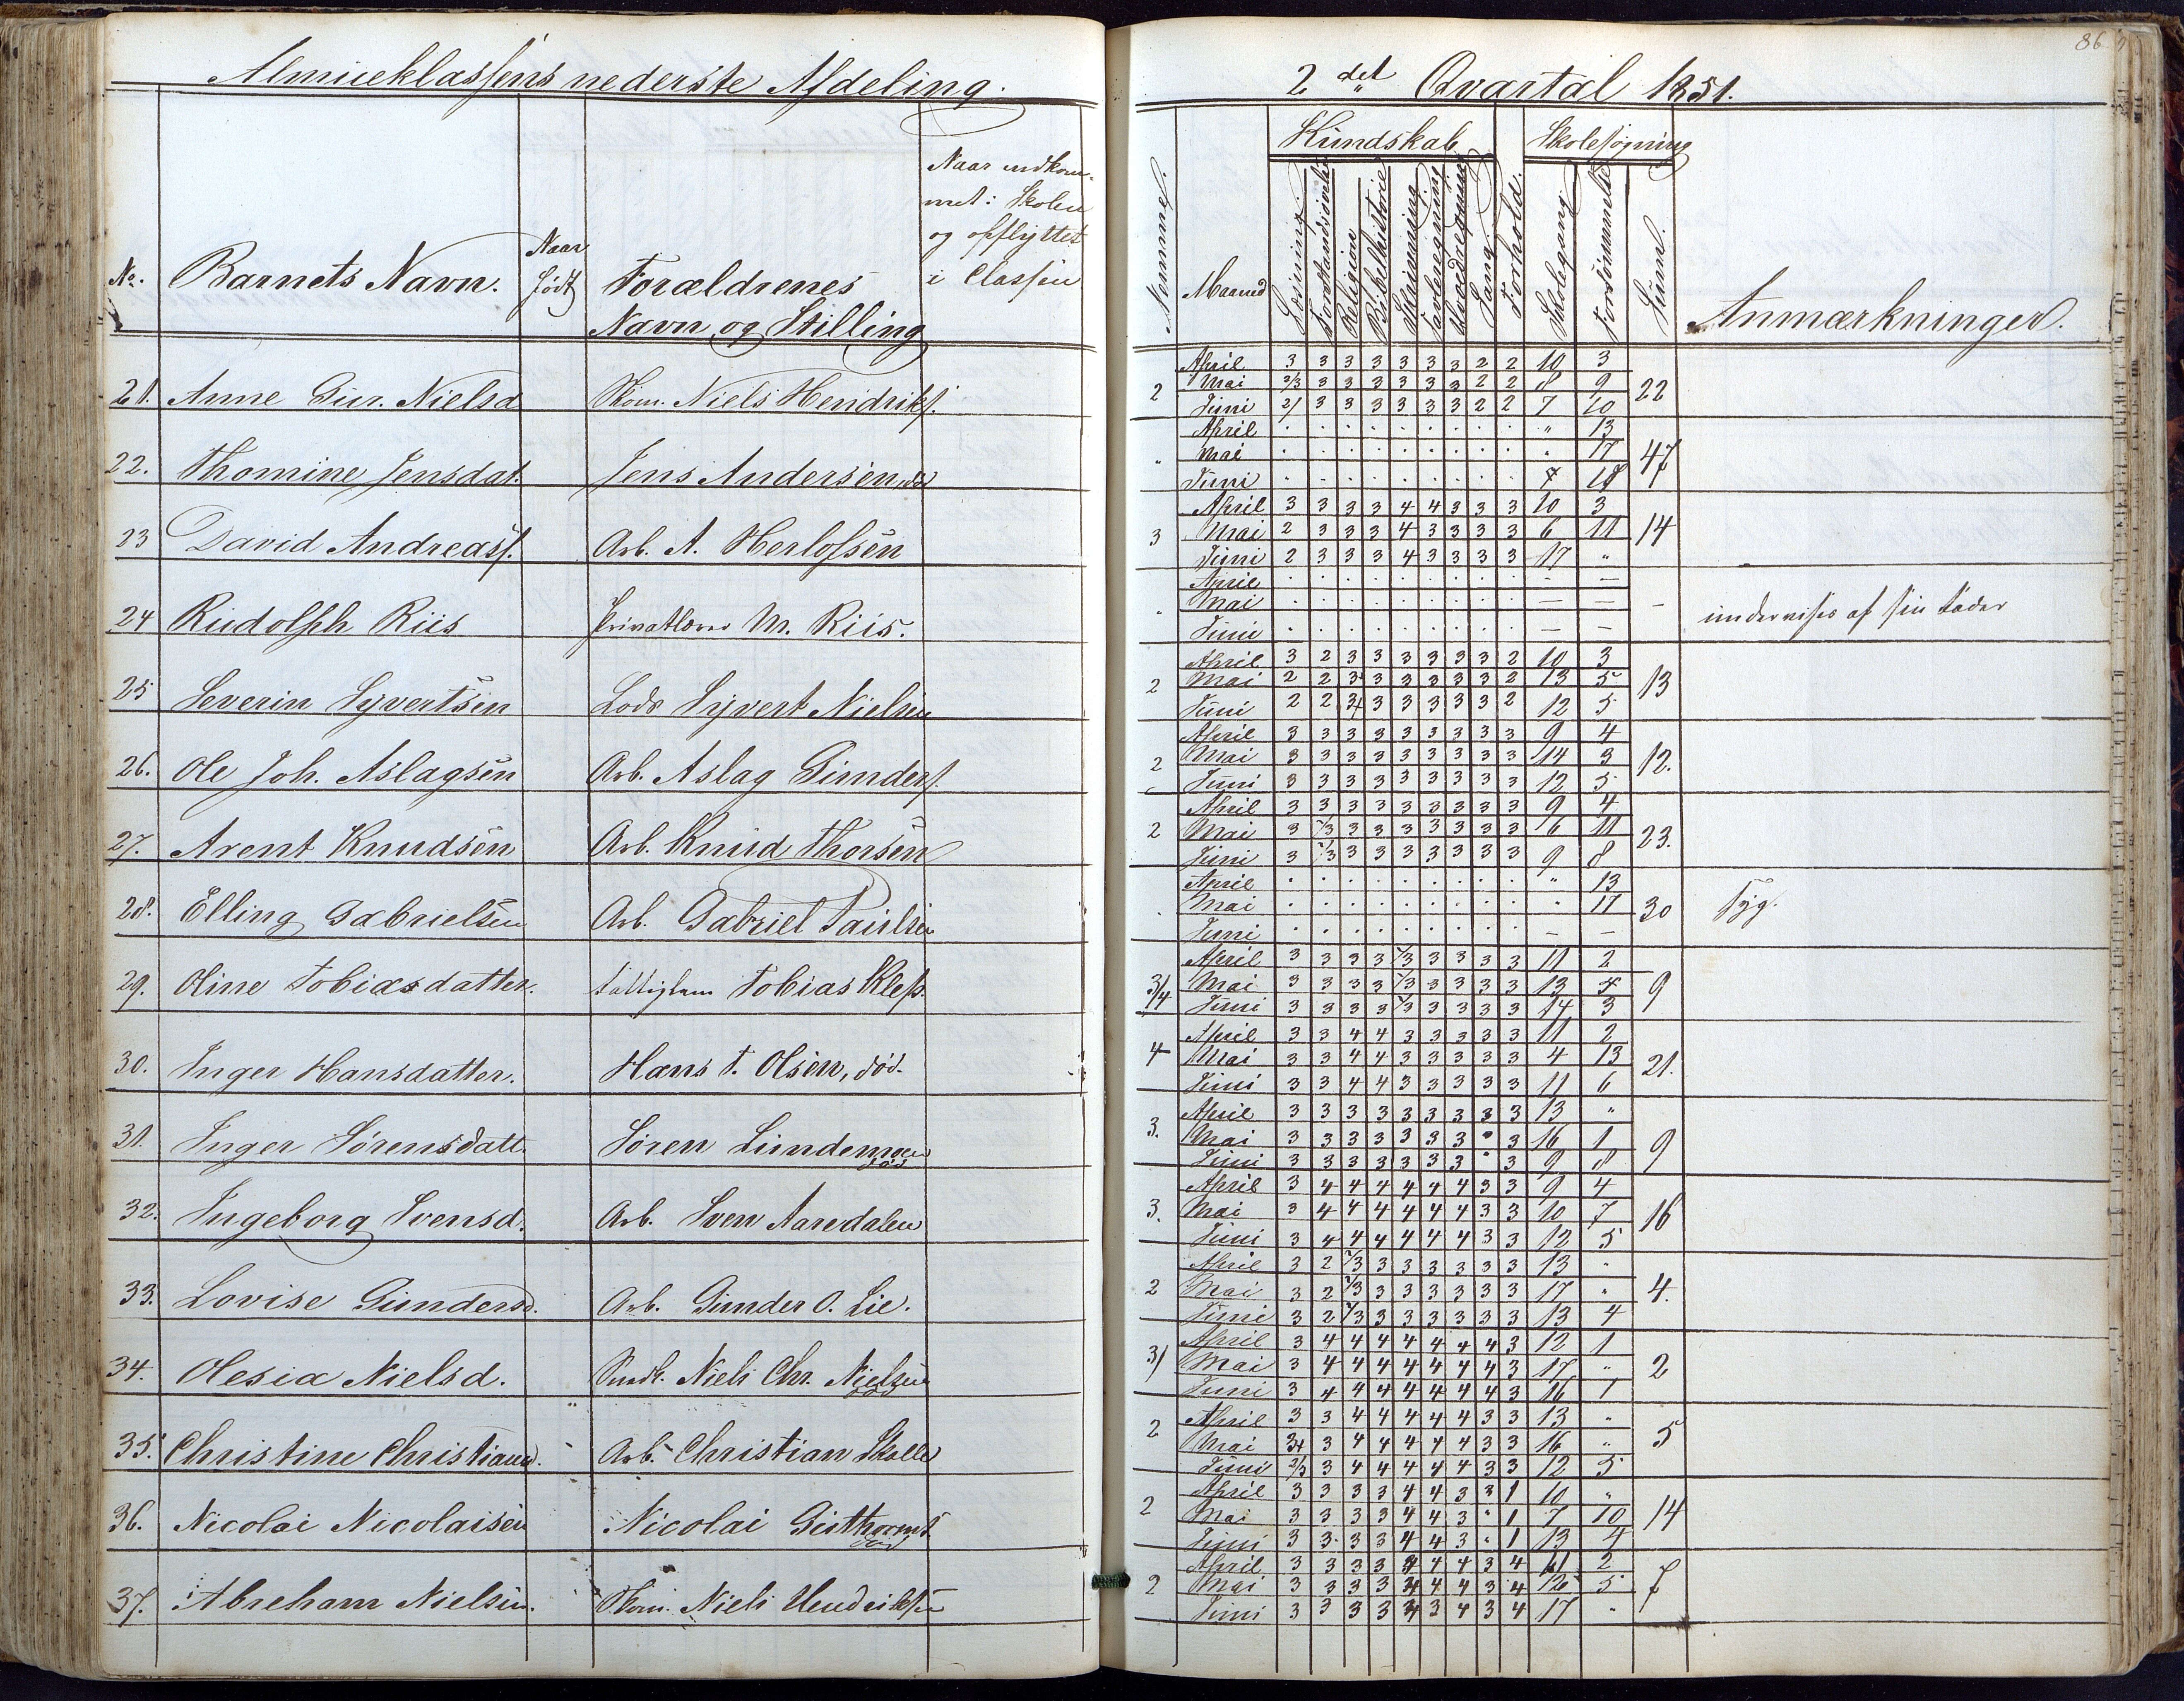 Almueklassens nederste Afdeling.
No. Barnets Navn. Naar født Forældrenes Navn og Stilling Naar indkommet i Skolen og opflyttet i Classen
21. Anne Gur. Nielsd Skom. Niels Hendriks.
22. Thomine Jensdat. Jens Andersen, død
23 David Andreass. Arb. A. Herlofsen
24 Rudolph Riis Privatlærer M. Riis.
25 Severin Syvertsen Lods Syvert Nielsen
26. Ole Joh. Aslagsen Arb. Aslag Gunders.
27. Arent Knudsen Arb. Knud Thorsen
28. Elling Gabrielsen Arb. Gabriel Paulsen
29. Oline Tobiasdatter. Fattiglem Tobias Klep.
30. Inger Hansdatter. Hans T. Olsen, død.
31. Inger Sørensdatt. Søren Lindemoen død
32. Ingeborg Svensd. Arb. Sven Aaredalen
33. Lovise Gundersd. Arb. Gunder O. Lie.
34. Olesia Nielsd. Niels Chr. Nielsen død
35. Christine Christiansd. Arb. Christian Skolle
36. Nicolai Nicolaisen Nicolai død
37. Abraham Nielsen. Skom. Niels Hendriksen
86
2det Qvartal 1851.
Nummer. Maaned Kundskab Skolesøgning
Læsning Forstandsøvelse Religion Bibelhistorie Skrivning Tavleregning Hovedregning Sang Forhold. Skolegang Forsømmelse Summa. Anmærkninger.
April 3 3 3 3 3 3 3 2 2 10 3
2 Mai 2/3 3 3 3 3 3 3 2 2 8 9 22
Juni 2/ 3 3 3 3 3 3 2 2 7 10
April " 13
" Mai " 17 47
Juni 7 18
April 3 3 3 3 4 4 3 3 3 10 3
3 Mai 2 3 3 3 4 3 3 3 3 6 11 14
Juni 2 3 3 3 4 3 3 3 3 17 "
April — —
" Mai — — — undervises af sin Fader
Juni — —
April 3 2 3 3 3 3 3 3 2 10 3
2 Mai 2 2 3 3 3 3 3 3 2 13 5 13
Juni 2 2 3/4 3 3 3 3 3 2 12 5
April 3 3 3 3 3 3 3 3 3 9 4
2 Mai 3 3 3 3 3 3 3 3 3 14 3 12.
Juni 3 3 3 3 3 3 3 3 3 12 5
April 3 3 3 3 3 3 3 3 3 9 4
2 Mai 3 2/3 3 3 3 3 3 3 3 6 11 23.
Juni 3 2/3 3 3 3 3 3 3 3 9 8
April " 13
Mai " 17 30 Syg.
Juni — —
April 3 3 3 3 2/3 3 3 3 3 11 2
3/4 Mai 3 3 3 3 2/3 3 3 3 3 13 4 9
Juni 3 3 3 3 2/3 3 3 3 3 14 3
April 3 3 4 4 3 3 3 3 3 11 2
4 Mai 3 3 4 4 3 3 3 3 3 4 13 21.
Juni 3 3 4 4 3 3 3 3 3 11 6
April 3 3 3 3 3 3 3 3 3 13 "
3. Mai 3 3 3 3 3 3 3 " 3 16 1 9
Juni 3 3 3 3 3 3 3 " 3 9 8
April 3 4 4 4 4 4 4 3 3 9 4
3. Mai 3 4 4 4 4 4 4 3 3 10 7 16
Juni 3 4 4 4 4 4 4 3 3 12 5
April 3 2 2/3 3 3 3 3 3 3 13 "
2 Mai 3 2 2/3 3 3 3 3 3 3 17 " 4.
Juni 3 2 2/3 3 3 3 3 3 3 13 4
April 3 4 4 4 4 4 4 4 3 12 1
3/ Mai 3 4 4 4 4 4 4 4 3 17 " 2
Juni 3 4 4 4 4 4 4 4 3 16 1
April 3 3 4 4 4 4 4 3 3 13 "
2 Mai 3 4 4 4 4 4 3 3 16 " 5
Juni 2/3 3 4 4 4 4 4 3 3 12 5
April 3 3 3 3 4 4 3 3 1 10 "
2 Mai 3 3 3 3 4 4 3 " 1 7 10 14
Juni 3 3 3 3 4 4 3 " 1 13 4
April 3 3 3 3 4 4 4 3 4 11 2
2 Mai 3 3 3 3 4 4 4 3 4 12 5 7
Juni 3 3 3 3 4 3 4 3 4 17 "